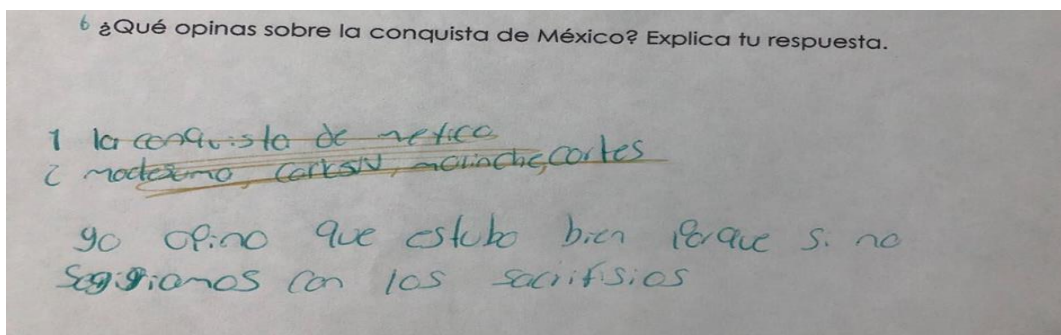 6 ¿Qué opinas sobre la conquista de México? Explica tu respuesta.
1 la conquista de mexico
2 moctezuma, carlosIV, malinche, cortes
yo opino que estubo bien porque si no
segigiamos con los sacrifisios